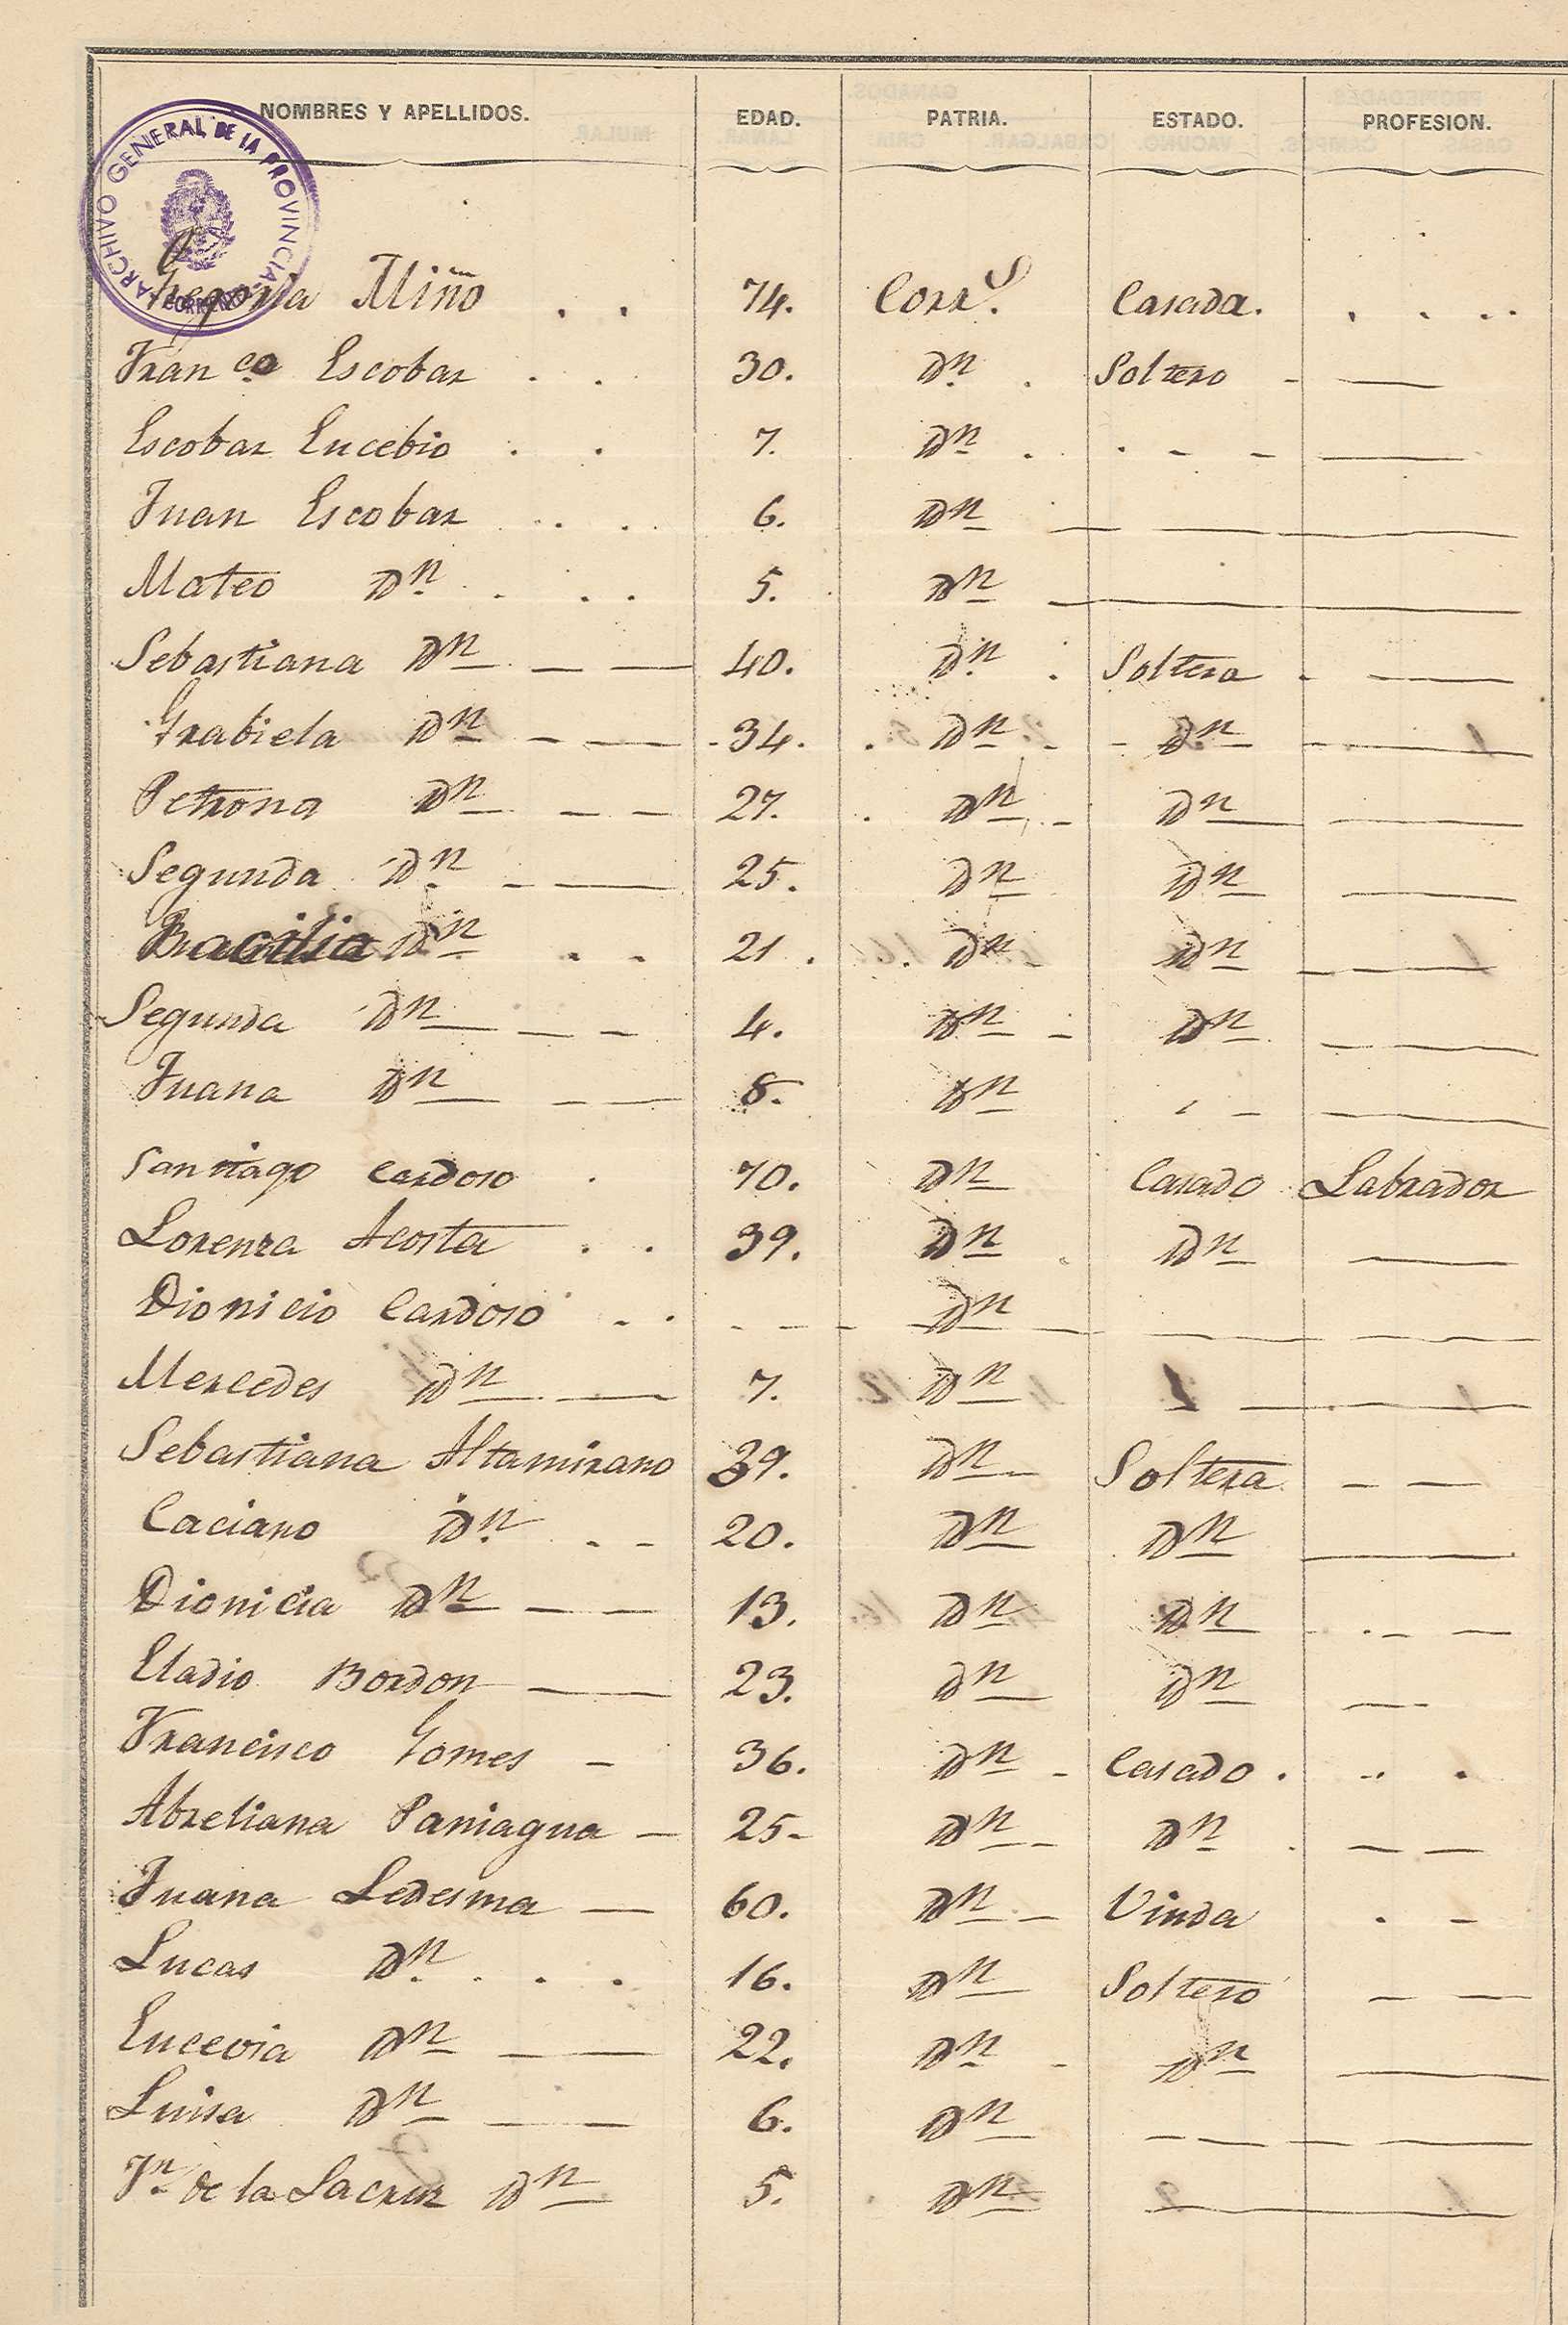 NOMBRES Y APELLIDOS. EDAD. PATRIA. ESTADO. PROFESION.
ARCHIVO GENERAL DE LA PROVINCIA
Gregoria Miño . . 74. Corr.s Casada. . . . .
Franco Escobar . . 30. Dn . Soltero - —
Escobar Eucebio . . 7. Dn . . - - —
Juan Escobar . . . 6. Dn — — —
Mateo Dn . . . 5. Dn — —
Sebastiana Dn — — 40. Dn . Soltera . - —
Grabiela Dn — — 34. . Dn - - Dn - —
Petrona Dn — — 27. . Dn - Dn —
Segunda Dn - — 25. Dn Dn —
Bacilia Dn . . 21. . Dn - Dn - - —
Segunda Dn — - 4. Dn - Dn - — —
Juana Dn — — 8. Dn . - —
Santiago Cardoso . 70. Dn Casado Labrador
Lorenza Acosta . . 39. Dn . Dn —
Dionicio Cardoso - . - - - Dn — — —
Mercedes Dn — 7. Dn — —
Sebastiana Altamirano 39. Dn - Soltera — —
Caciano Dn . - 20. Dn Dn —
Dionicia Dn — — 13. Dn Dn . - - —
Eladio Bordon — 23. Dn Dn — -
Francisco Gomes - 36. Dn - Casado . . . .
Abreliana Paniagua — 25- Dn - Dn . — —
Juana Ledesma — 60. Dn - Viuda . -
Lucas Dn . . . . 16. Dn Soltero — —
Eucevia Dn — — 22. Dn - Dn —
Luisa Dn — — 6. Dn — — — —
Jn de la Lacruz Dn 5. . Dn —